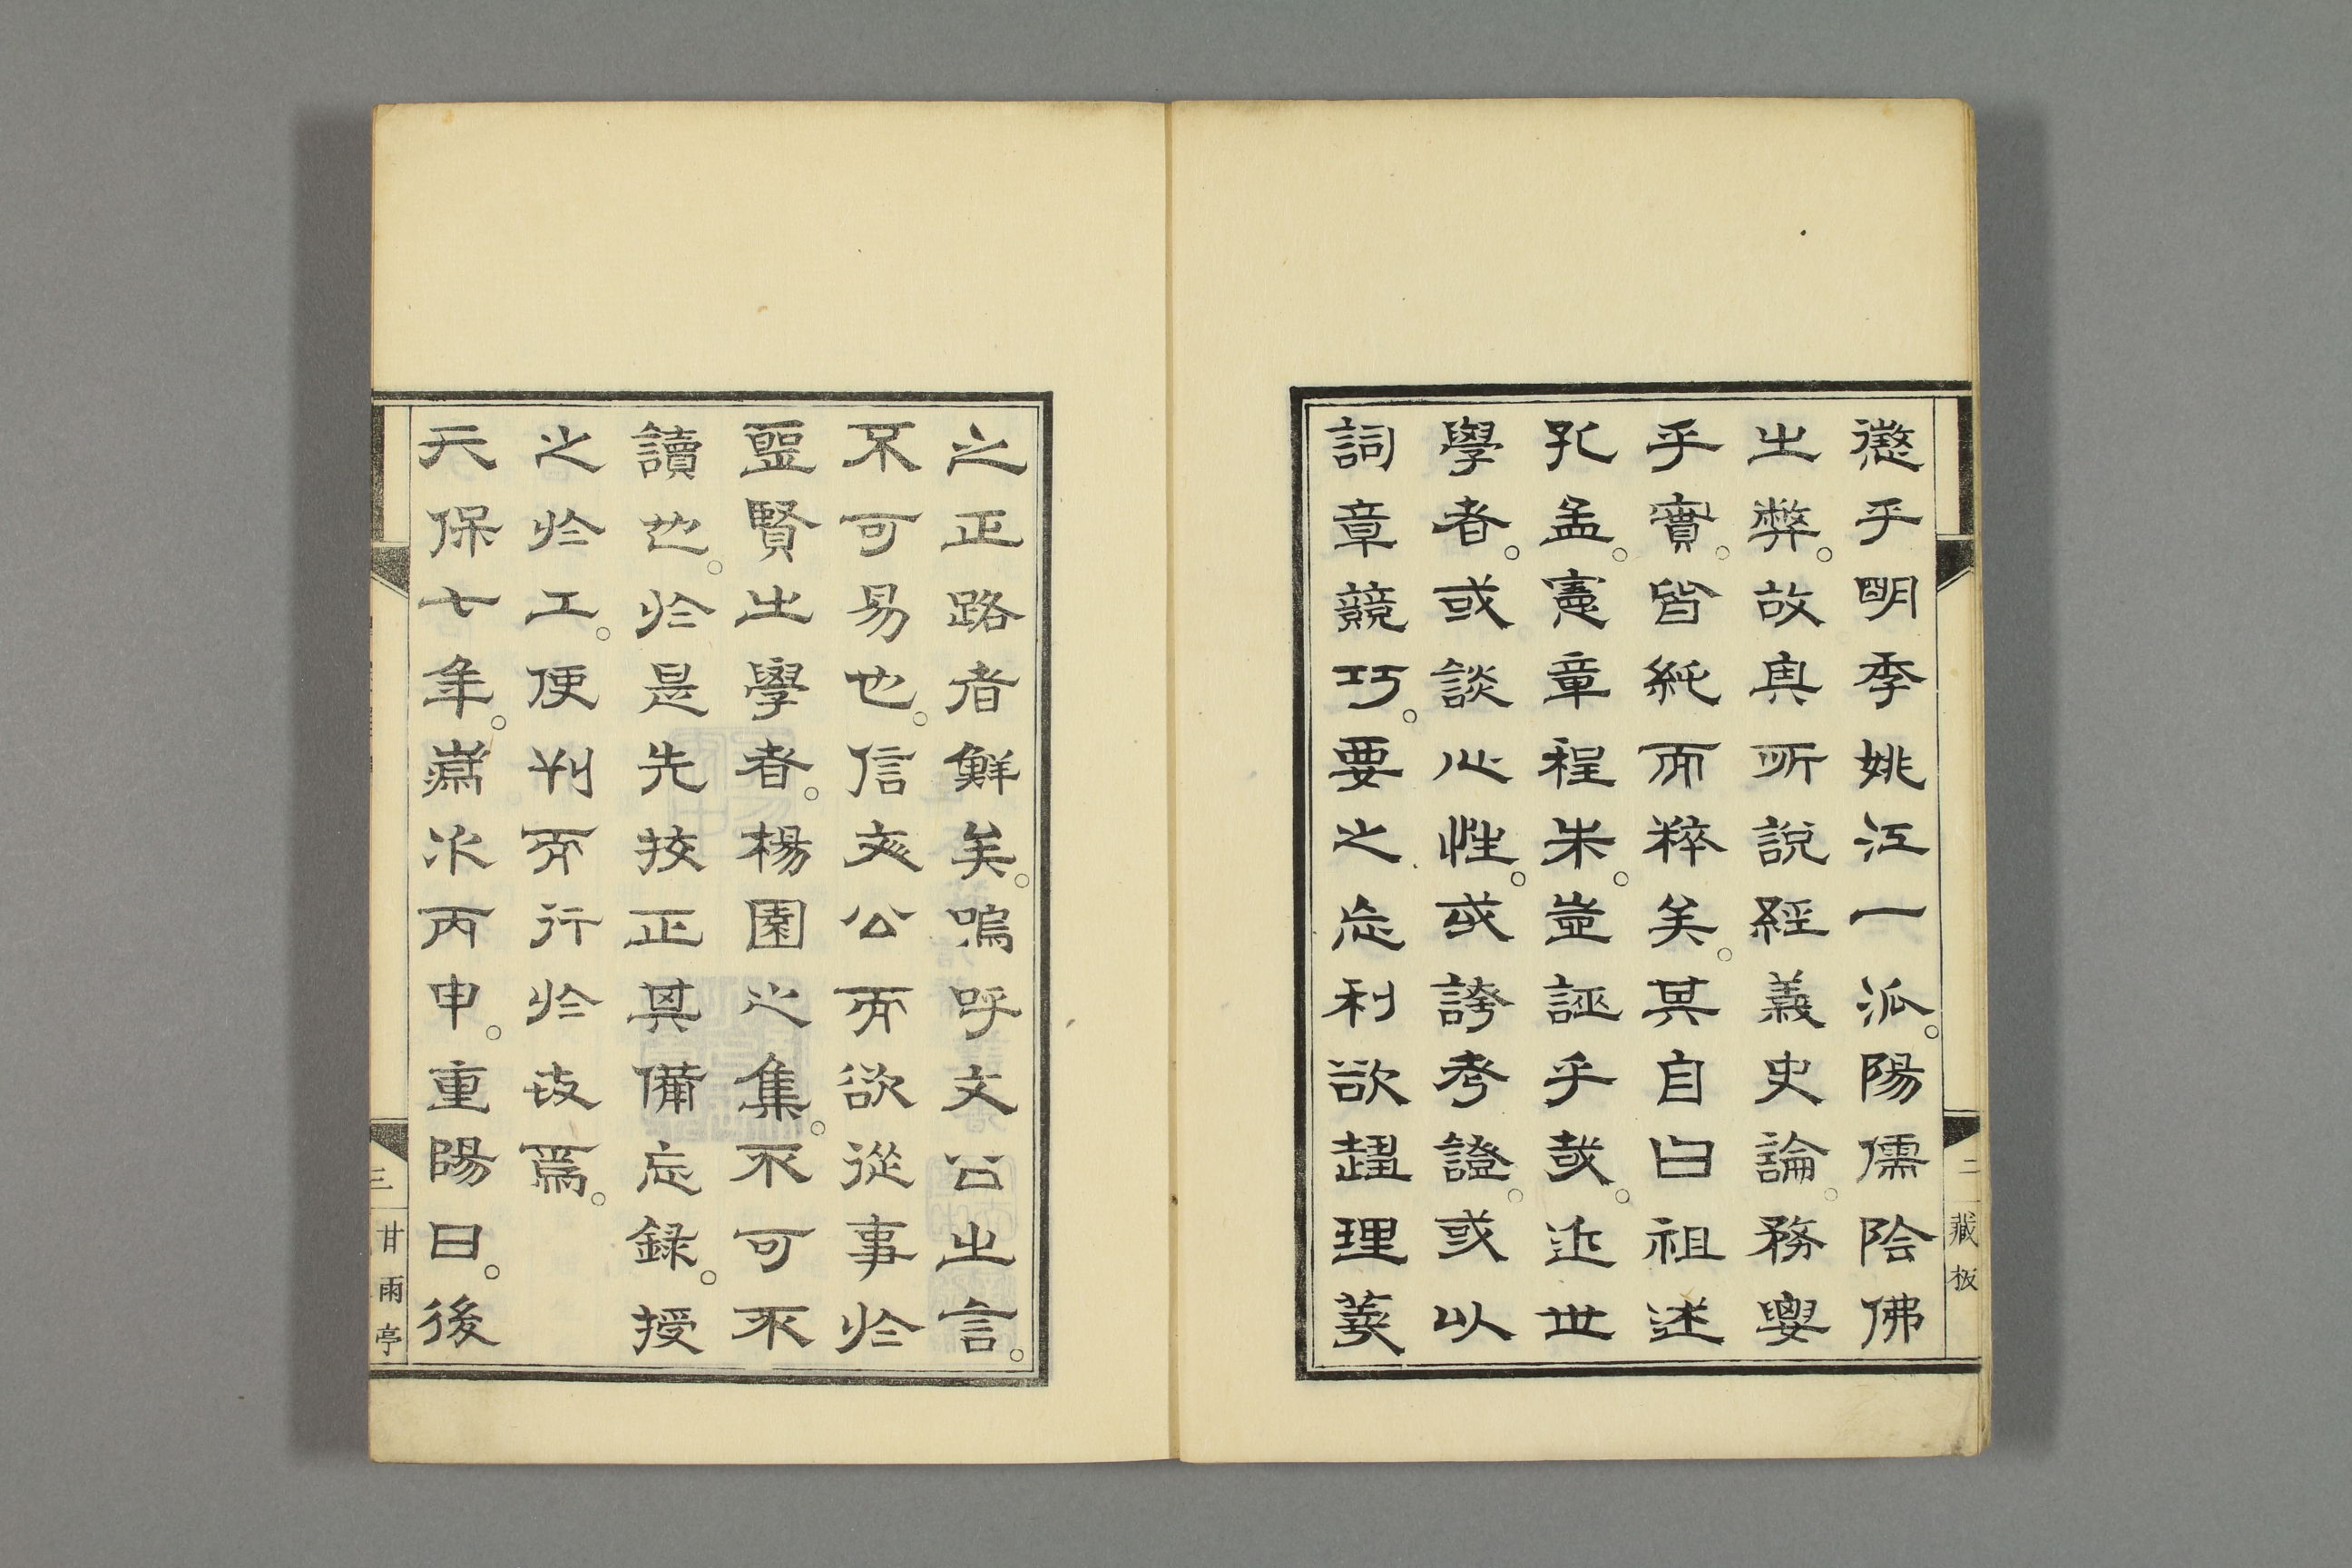 懲乎明季姚江一派。陽儒陰佛
之弊。故其所說經義史論。務要
乎實。皆純而粹矣。其自曰祖述
孔孟。憲章程朱。豈誣乎哉。近世
學者。或談心性。或誇考證。或以
詞章競巧。要之忘利欲趨理義
二 藏板
之正路者鮮矣。嗚呼文公之言。
不可易也。信文公而欲從事於
聖賢之學者。楊園之集。不可不
讀也。於是先挍正其備忘錄。授
之於工。便刊而行於世焉。
天保七年。歲次丙申。重陽日。後
三 甘雨亭